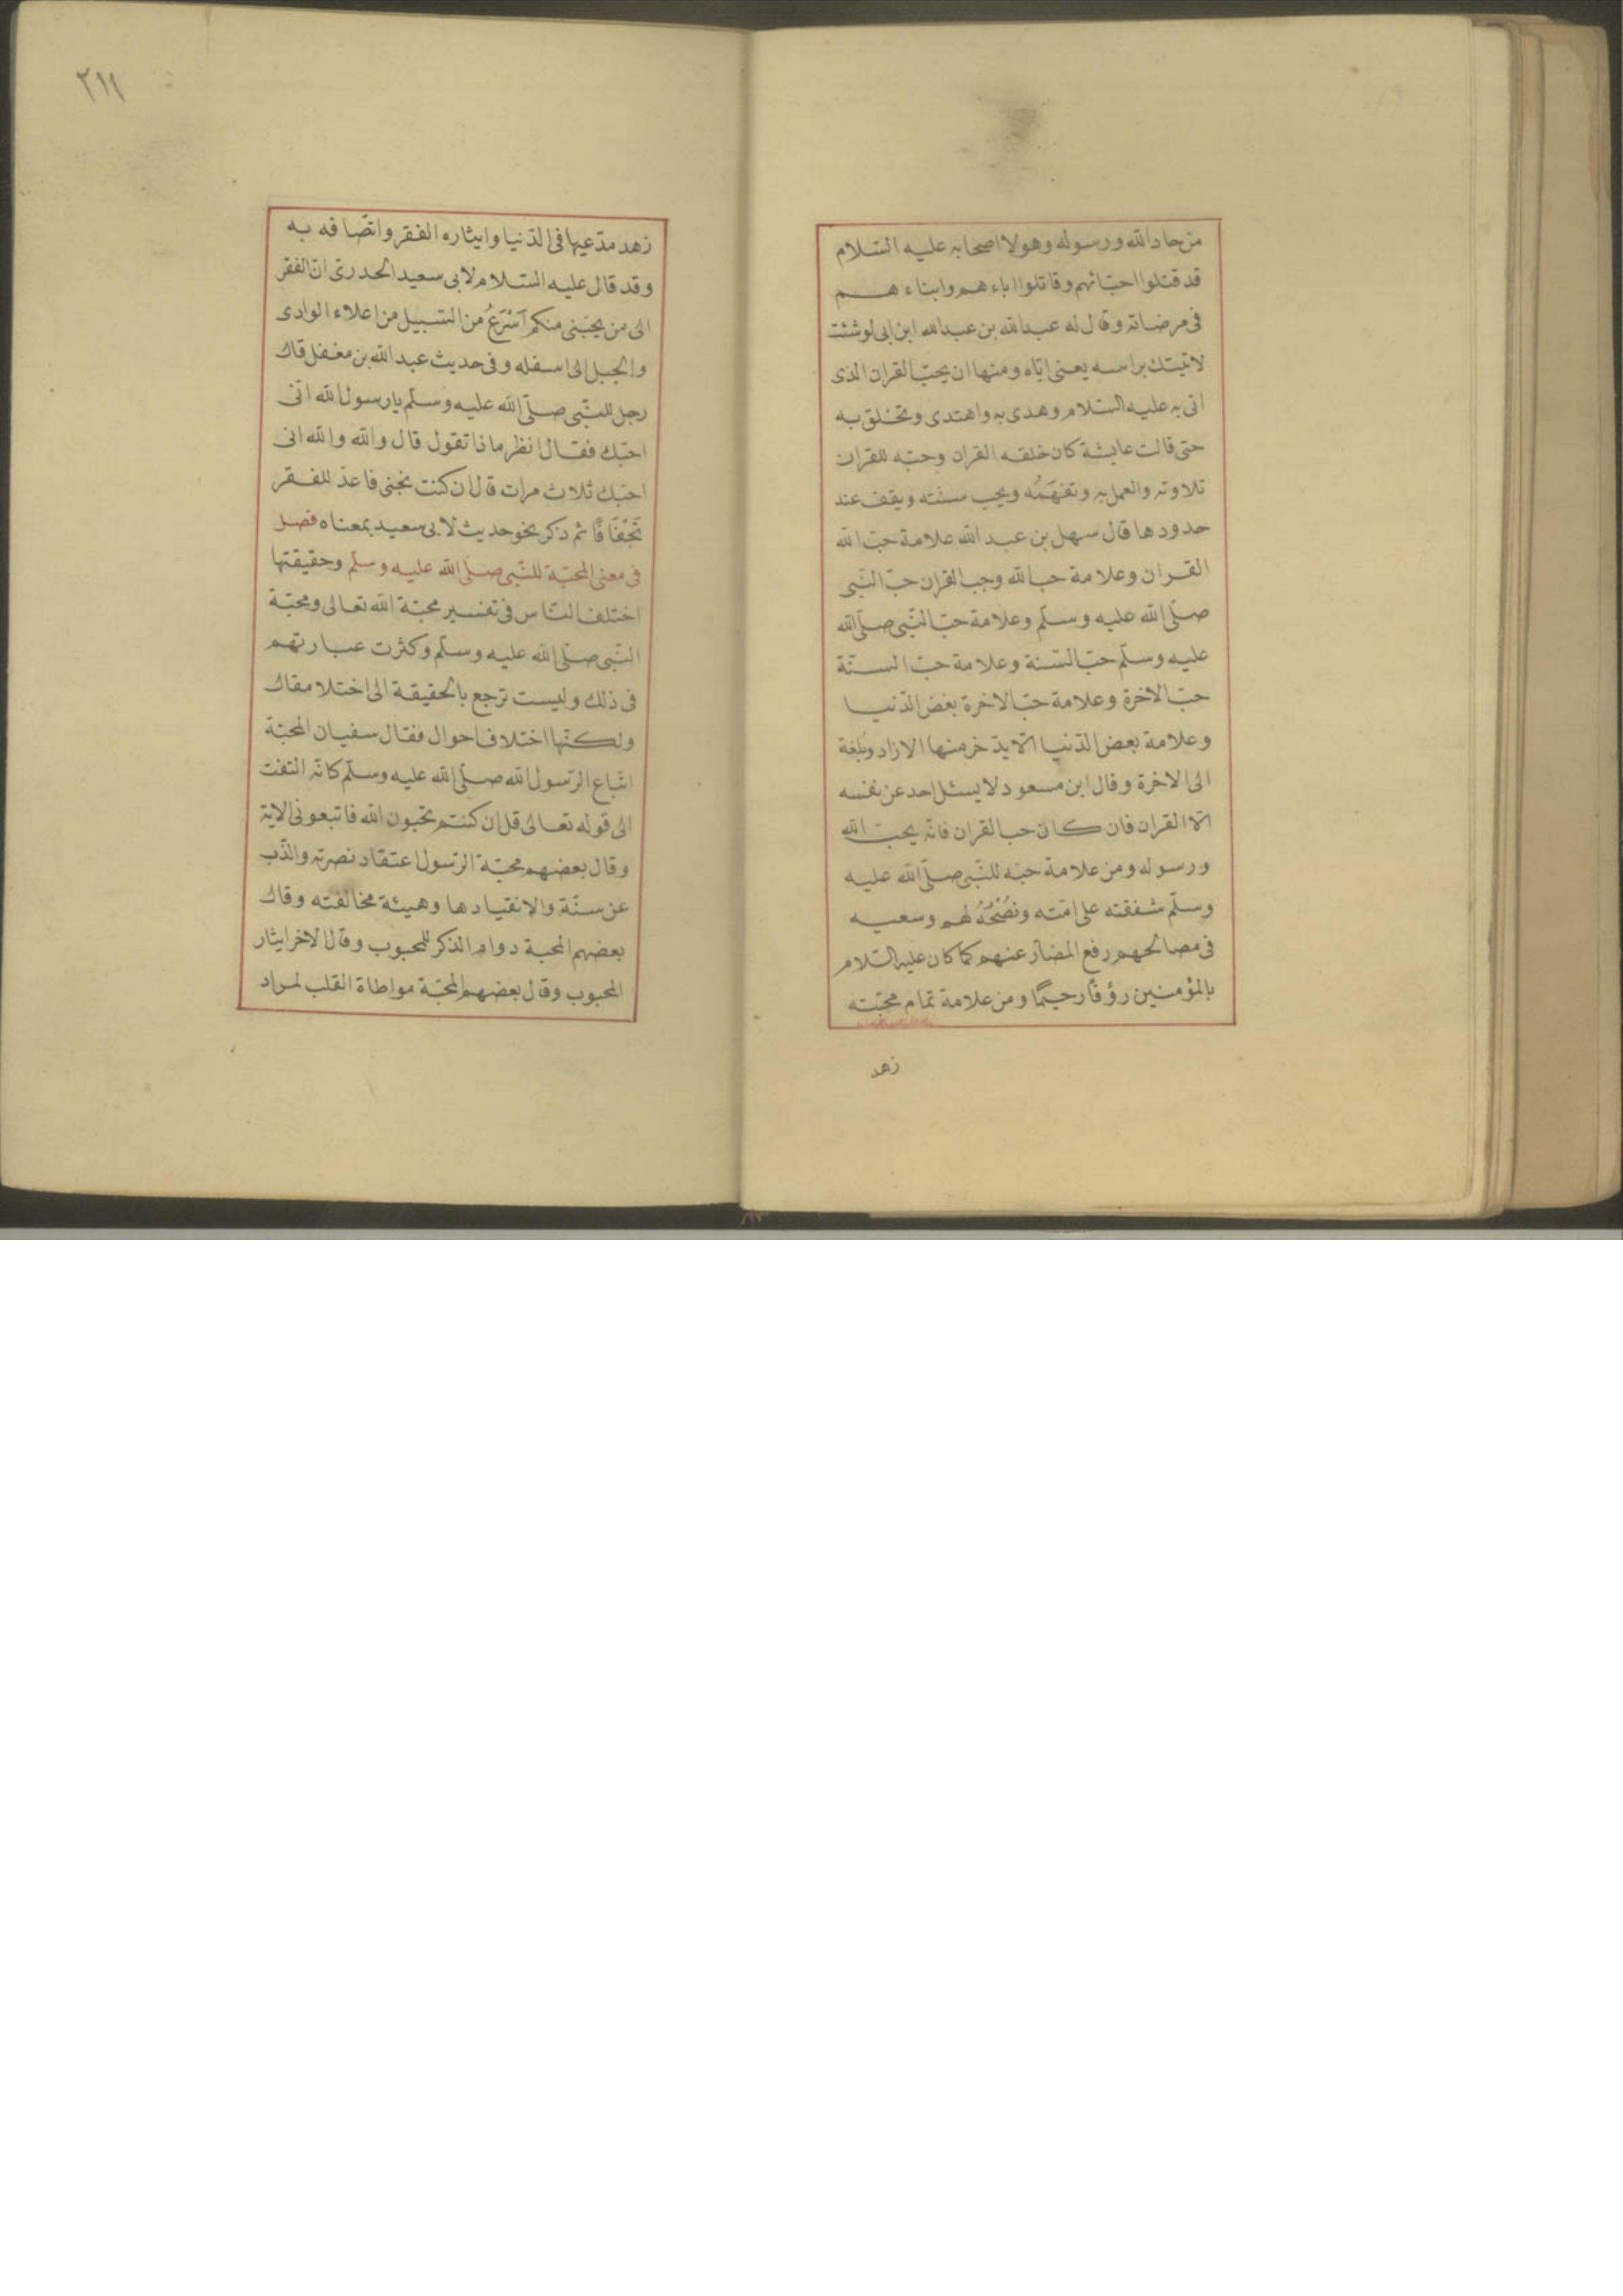 من حاد الله ورسوله وهولا اصحابه عليه السّلام
قد قتلوا احبّائهم وقاتلوا اباءهم وابناءهم
فى مرضاته وقال له عبد الله بن عبد الله ابن ابى لوشئت
لاتيتك براسه يعنى ايّاه ومنها ان يحبّ القران الذى
اتى به عليه السّلام وهدى به واهتدى وتخلق به
حتى قالت عايشة كان خلقه القران وحبّه للقران
تلاوته والعمل به وتفهّمُه ويحب سنّته ويقف عند
حدودها قال سهل بن عبد الله علامة حبّ الله
القران وعلامة حب الله وحب القران حبّ النّبى
صلّى الله عليه وسلّم وعلامة حبّ النّبى صلّى الله
عليه وسلّم حبّ السّنة وعلامة حبّ السنّة
حبّ الاخرة وعلامة حبّ الاخرة بغض الدّنيا
وعلامة بعض الدّنيا الّا يدّخر منها الا زاد وبُلغة
الى الاخرة وقال ابن مسعود لا يسئل احد عن نفسه
الّا القران فان كان حب القران فانّه يحبّ الله
ورسوله ومن علامة حبّه للنّبى صلّى الله عليه
وسلّم شفقته على امّته ونُصْحُهُ لهم وسعيه
فى مصالحهم رفع المضارّ عنهم كما كان عليه السّلام
بالمؤمنين رؤفًا رحيمًا ومن علامة تمام محبّته
زهد
٢١١
زهد مدّعيها فى الدّنيا وايثاره الفقر واتّصافه به
وقد قال عليه السّلام لابى سعيد الحدرىّ انّ الفقر
الى من يحبّنى منكم اَسْرَعُ من السّبيل من اعلاء الوادى
والجبل الى اسفله وفى حديث عبد الله بن مغفل قال
رجل للنّبى صلّى الله عليه وسلّم يا رسول الله انّى
احبّك فقال انظر ماذا تقول قال والله والله انى
احبّك ثلاث مرات قال ان كنت تحبنى فاعدّ للفقر
تَجْفَافًا ثم ذكر نحو حديث لابى سعيد بمعناه فصل
فى معنى المحبّة للنّبى صلّى الله عليه وسلّم وحقيقتها
اختلف النّاس فى تفسير محبّة الله تعالى ومحبّة
النّبى صلّى الله عليه وسلّم وكثرت عبارتهم
فى ذلك وليست ترجع بالحقيقة الى اختلا مقال
ولكنّها اختلاف احوال فقال سفيان المحبّة
اتّباع الرّسول الله صلّى الله عليه وسلّم كانّه التفت
الى قوله تعالى قل ان كنتم تحبون الله فاتبعونى الاية
وقال بعضهم محبّة الرّسول اعتقاد نصرته والذّب
عن سنّة والانقياد ها وهيئة مخالفته وقال
بعضهم المحبة دوام الذكر للمحبوب وقال الاخر ايثار
المحبوب وقال بعضهم المحبّة مواطاة القلب لمراد